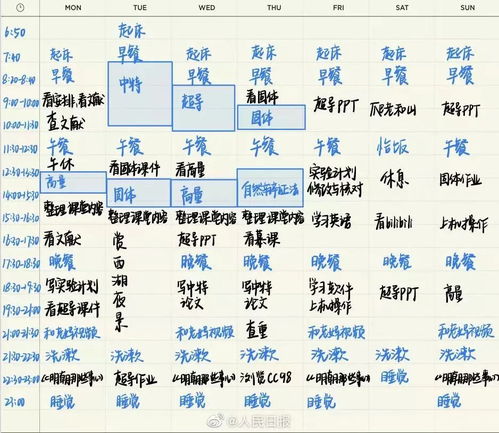 MON TUE WED THU FRI SAT SUN
6:50 起床
7:40 起床 早餐 起床 起床 起床 起床 起床
8:20-8:40 早餐 中特 早餐 早餐 早餐 早餐 早餐
9:00-10:00 看安排,看文献 超导 看固体 超导PPT 爬老和山 超导PPT
10:00-11:30 查文献 固体
11:30-12:30 午餐 午餐 午餐 午餐 午餐 恰饭 午餐
12:30-14:00 午休 看固体课件 看高量 实验计划 休息 固体作业
14:00-15:30 高量 固体 高量 自然辩证法 修改与核对
15:30-16:30 整理课堂内容 整理课堂内容 整理课堂内容 整理课堂内容 学习英语 看bilibili 上机操作
16:30-17:30 看文献 赏 超导PPT 看慕课
17:30-18:30 晚餐 西 晚餐 晚餐 晚餐 晚餐 晚餐
18:30-19:30 写实验计划 湖 写中特 写中特 学习文件 超导PPT 高量
19:30-21:00 看超导课件 夜 论文 论文 上机操作
21:00-21:30 和老妈视频 景 和老妈视频 查重 和老妈视频 和老妈视频
21:30-22:30 洗漱 洗漱 洗漱 洗漱 洗漱 洗漱 洗漱
22:30-23:00 《明朝那些事儿》 超导作业 《明朝那些事儿》 浏览CC98 《明朝那些事儿》 睡觉 《明朝那些事儿》
23:00 睡觉 睡觉 睡觉 睡觉 睡觉 睡觉
@人民日报